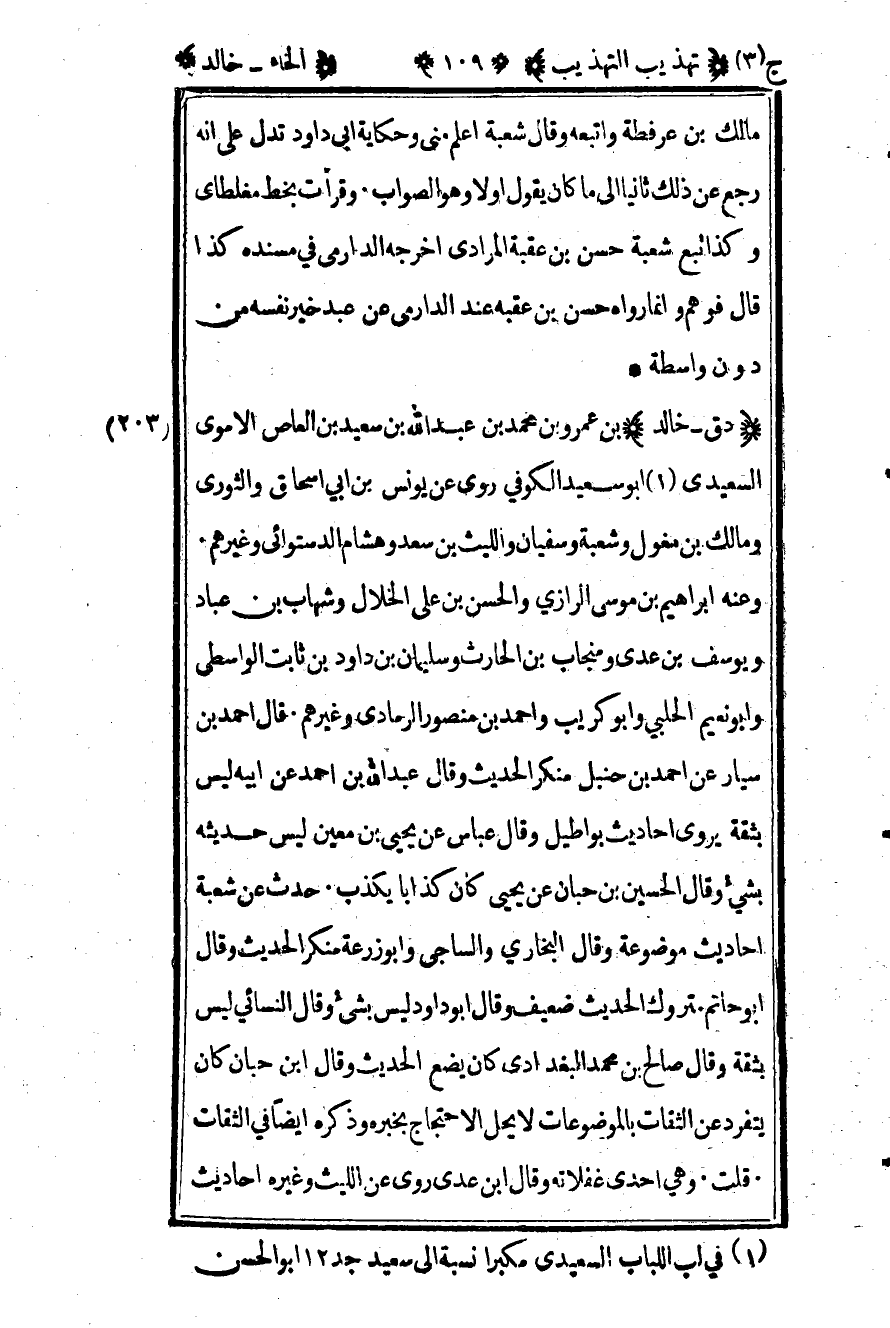 ج(٣) ﴿ تهذيب التهذيب ﴾ ﴿ ١٠٩ ﴾ ﴿ الخاء - خالد ﴾
مالك بن عرفطة واتبعه وقال شعبة اعلم منى وحكاية ابى داود تدل على انه
رجع عن ذلك ثانيا الى ما كان يقول اولا وهو الصواب · وقرأت بخط مغلطاى
و كذا تبع شعبة حسن بن عقبة المرادى اخرجه الدارمى في مسنده كذا
قال فوهم و انما رواه حسن بن عقبه عند الدارمى عن عبد خير نفسه من
دون واسطة *
﴿ دق - خالد ﴾ بن عمرو بن محمد بن عبد الله بن سعيد بن العاص الاموى (٢٠٣)
السعيدى (١) ابو سعيد الكوفي روى عن يونس بن ابي اسحاق والثورى
ومالك بن مغول وشعبة وسفيان والليث بن سعد وهشام الدستوائى وغيرهم ·
وعنه ابراهيم بن موسى الرازي والحسن بن على الخلال وشهاب بن عباد
ويوسف بن عدى ومنجاب بن الحارث وسليمان بن داود بن ثابت الواسطى
وابو نعيم الحلبي وابو كريب واحمد بن منصور الرمادى وغيرهم · قال احمد بن
سيار عن احمد بن حنبل منكر الحديث وقال عبد الله بن احمد عن ابيه ليس
بثقة يروى احاديث بواطيل وقال عباس عن يحيى بن معين ليس حديثه
بشئ وقال الحسين بن حبان عن يحيى كان كذابا يكذب · حدث عن شعبة
احاديث موضوعة وقال البخاري والساجى وابو زرعة منكر الحديث وقال
ابو حاتم متروك الحديث ضعيف وقال ابو داود ليس بشئ وقال النسائي ليس
بثقة وقال صالح بن محمد البغدادى كان يضع الحديث وقال ابن حبان كان
يتفرد عن الثقات بالموضوعات لا يحل الاحتجاج بخبره وذكره ايضا في الثقات
· قلت · وهي احدى غفلاته وقال ابن عدى روى عن الليث وغيره احاديث
(١) في لب اللباب السعيدى مكبرا نسبة الى سعيد جد ١٢ ابو الحسن